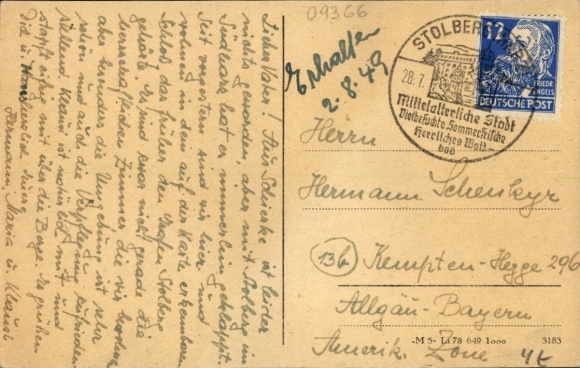 09366
Erhalten
2.8.49
STOLBERG
28.7.
Mittelalterliche Stadt
Vielbesuchte Sommerfrische
Herrliches Wald-
bad
12
FRIEDR.
ENGELS
DEUTSCHE POST
Herrn
Hermann Schenkyr
(13b) Kempten-Hegge 296
Allgäu-Bayern
Amerik. Zone
-M 5- Lt 78 649 1000 3183
Lieber Vater! Aus Schierke ist leider
nichts geworden, aber mit Stolberg im
Südharz hat es immerhin geklappt.
Seit vorgestern sind wir hier und
wohnen in dem auf der Karte erkennbaren
Schloß, das früher den Grafen Stolberg
gehörte. Es sind zwar nicht gerade die
herrschaftlichen Zimmer die wir bewohnen
aber besonders die Umgebung ist sehr
schön und auch die Verpflegung zufrieden-
stellend. Klausi ist natürlich mit und
stapft eifrig mit über die Berge. Es grüßen
Dich u.
Hermann, Maria u. Klausi